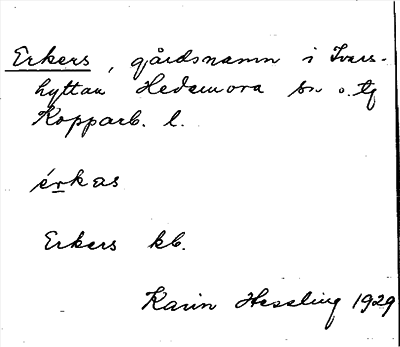 Erkers, gårdsnamn i Ivars-
hyttan Hedemora sn o. tg
Kopparb. l.
érkas
Erkers kb.
Karin Hessling 1929